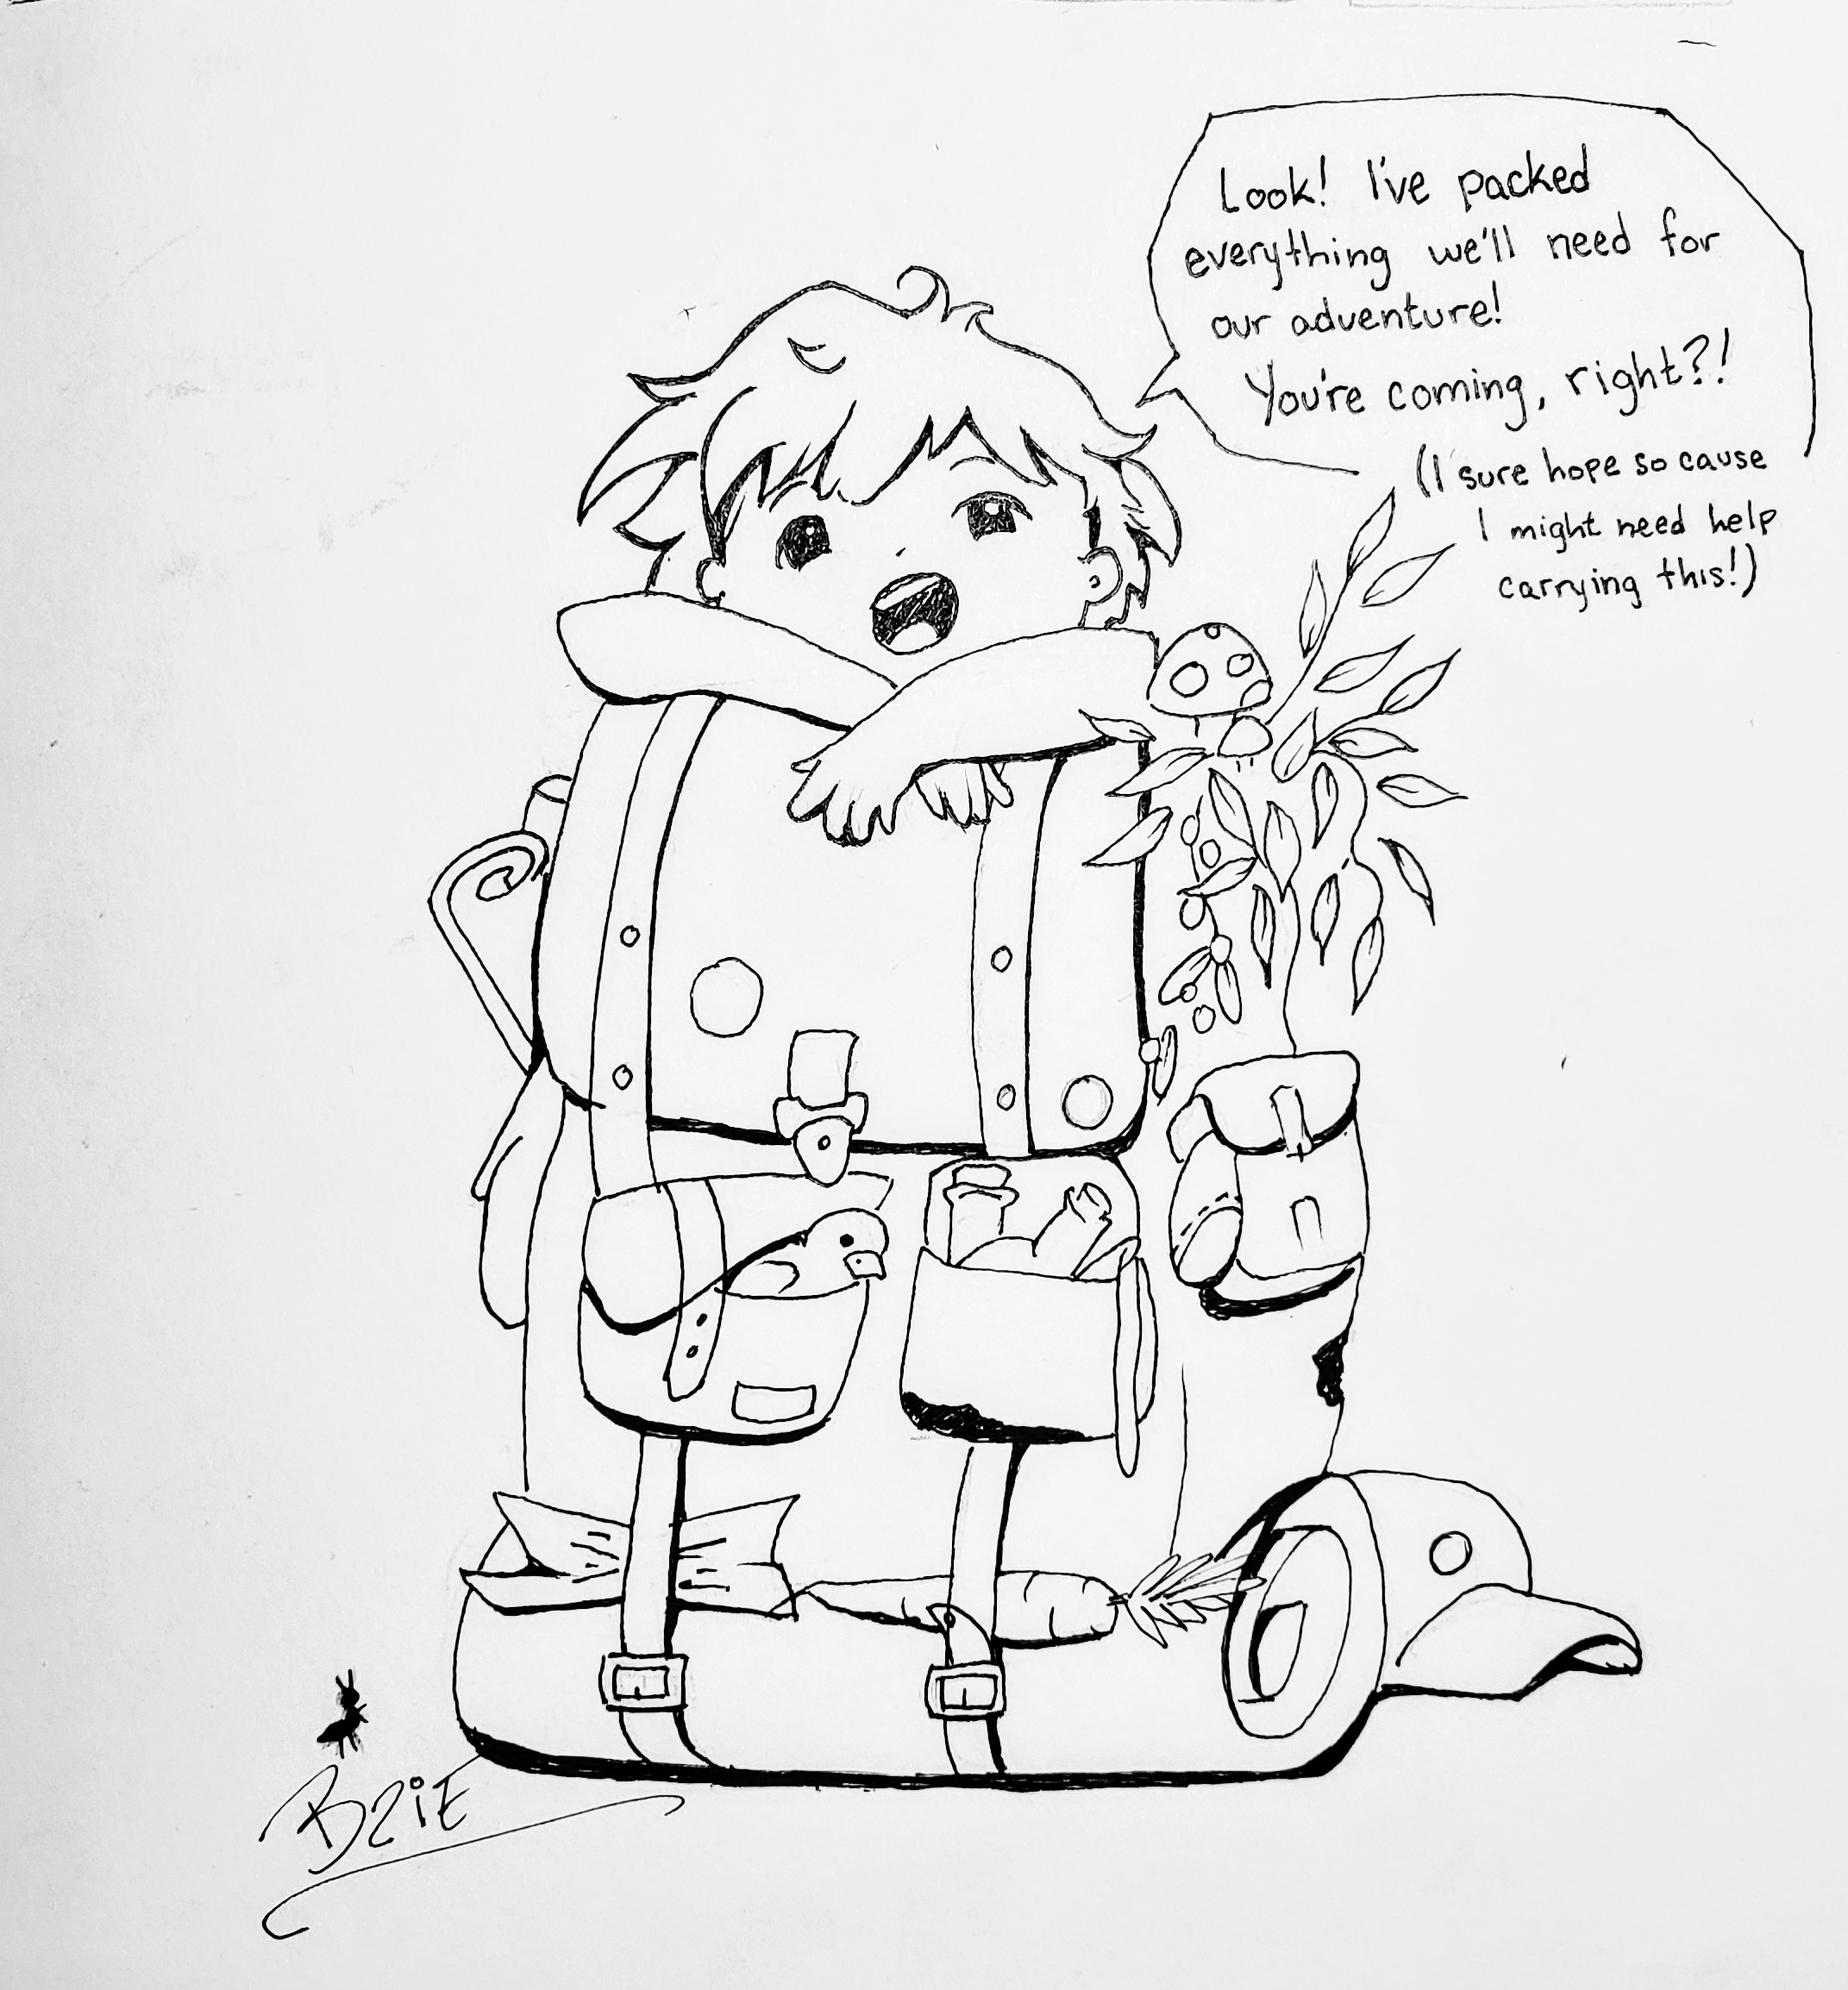 Look! I've packed
everything we'll need for
our adventure!
You're coming, right?!
(I sure hope so cause
I might need help
carrying this!)
BZiE